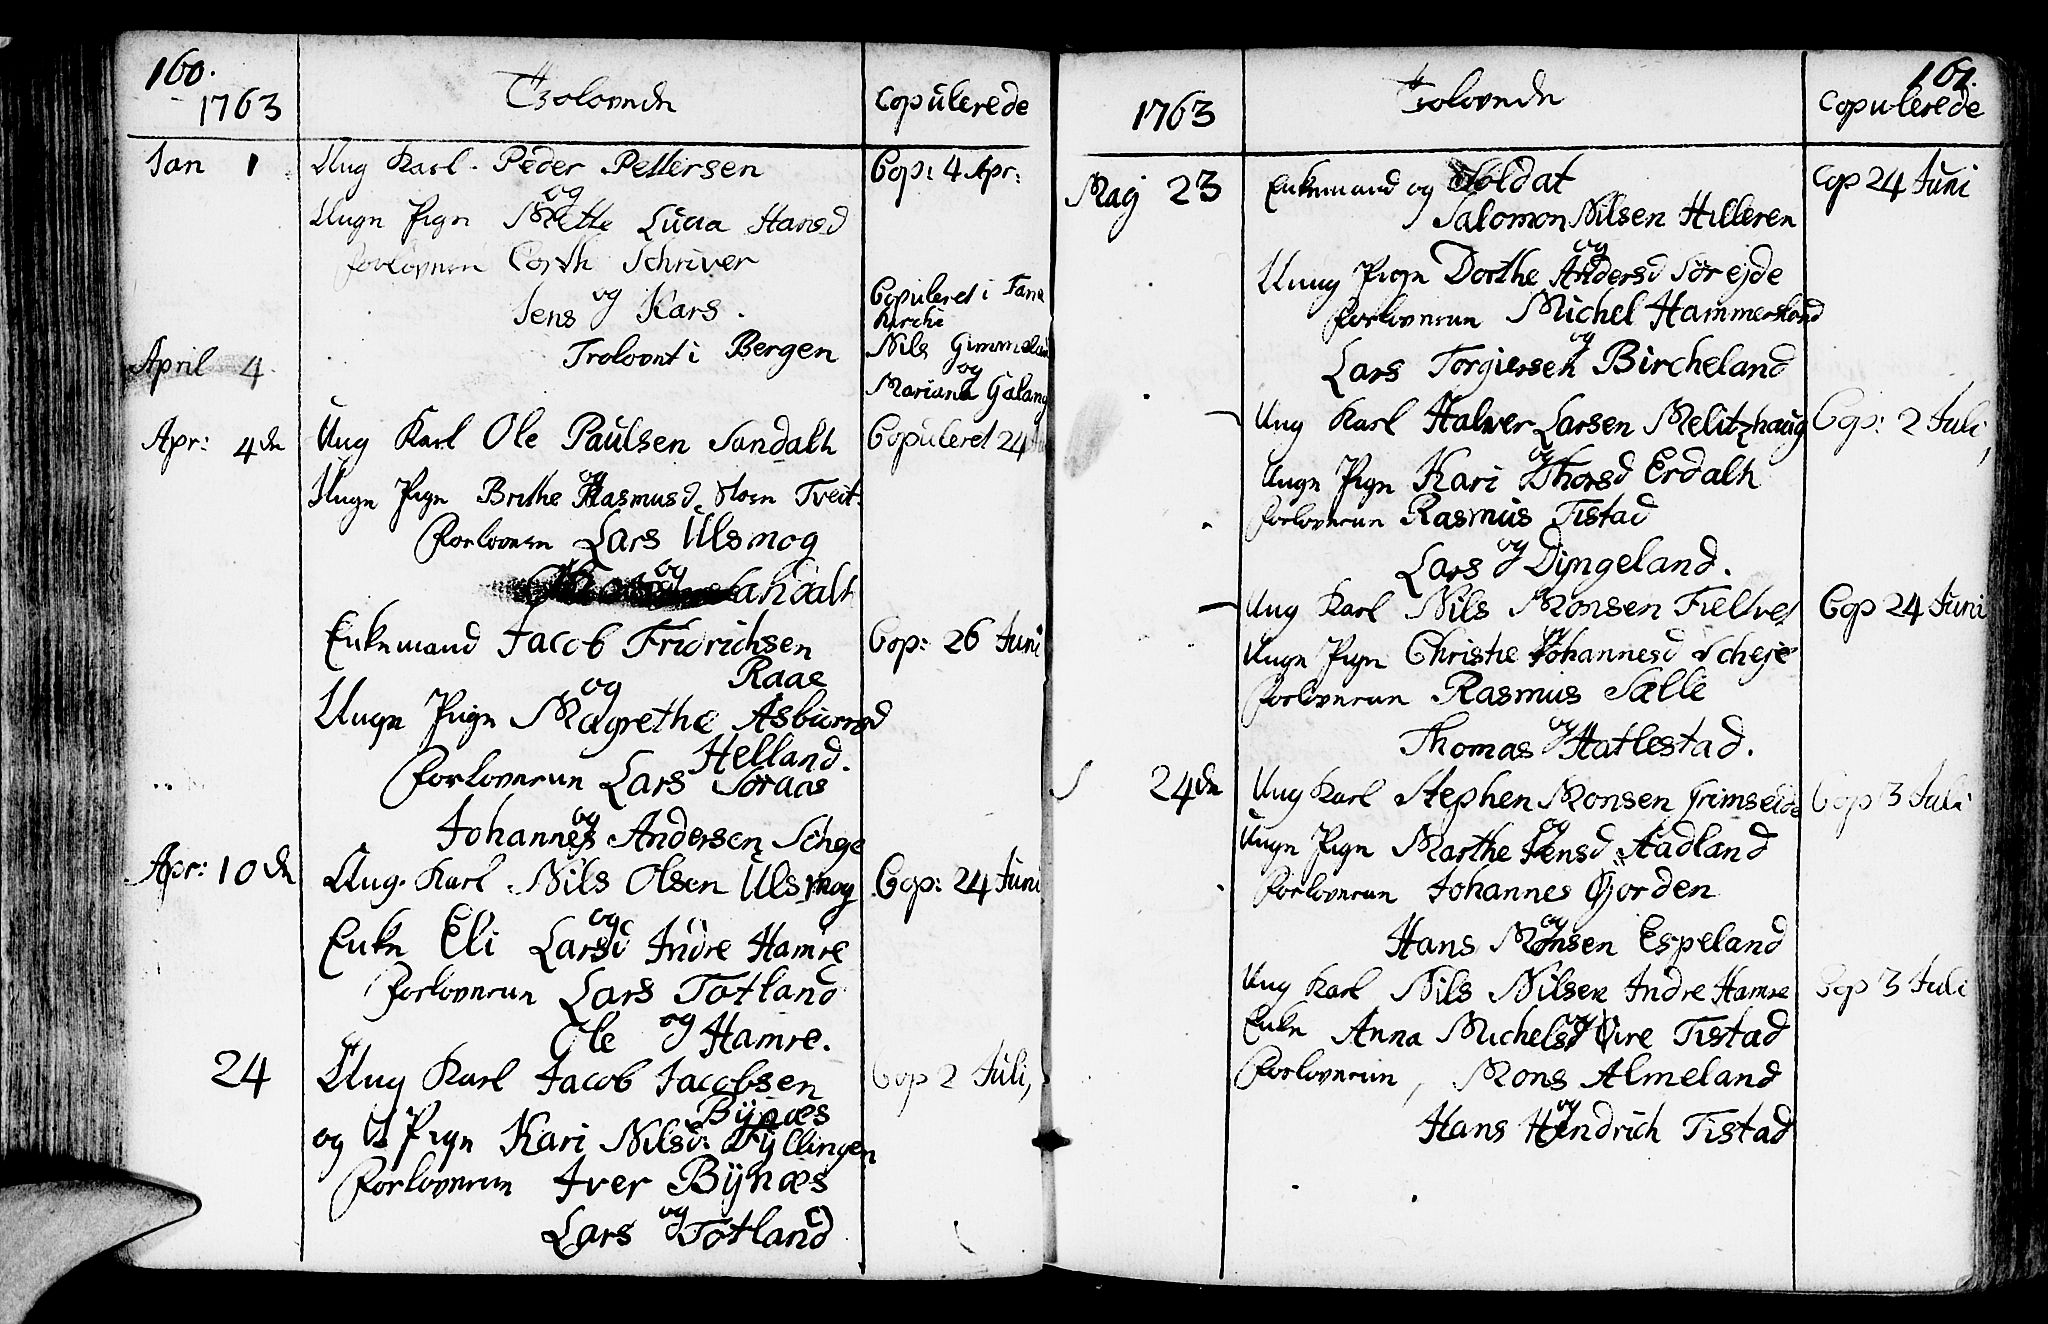 160.
1763
Trolovede
Copulerede
Jan 1
Ung Karl. Peder Pettersen
Cop: 4 Apr:
og
Unge Pige Mette Lucia Hansd
forlovere Corth Schriver
og
Jens Kars.
Trolovet i Bergen
April 4
Copuleret i Fane
Kirche
Nils Gimmeland
og
Mariana Galang
Apr: 4de
Ung Karl Ole Paulsen Sandalh
Copuleret 24
og
Unge Pige Brithe Rasmusd. Tveit.
Forlovere Lars Ulsmog
og
Enkemand Jacob Fridrichsen
Raae
Cop: 26 Juni
og
Unge Pige Magrethe Asbiørnsd
Helland.
Forloverne Lars Søraas
og
Johannes Andersen Schge
Apr: 10de
Ung. Karl. Nils Olsen Ulsmog
Cop: 24 Juni
og
Enke Eli Larsd Indre Hamre
Forloverne Lars Totland
og
Ole Hamre.
24
Ung Karl Jacob Jacobsen
Bynæs
Cop 2 Juli,
og U Pige Kari Nilsd: Fyllingen
Forloverne Iver Bynæs
og
Lars Totland
161.
1763
Trolovede
Copulerede
Maj 23
Enkemand og Soldat
Salomon Nilsen Hilleren
Cop 24 Juni
og
Unng Pige Dorthe Andersd Sørejde
Forloverne Michel Hammersland
og
Lars Torgiersen Bircheland
Ung Karl Halver Larsen Melitzhaug
Cop: 2 Juli,
og
Unge Pige Kari Thorsd Erdalh
Forloverne Rasmus Tistad
og
Lars Dyngeland.
Ung Karl Nils Monsen Fieltvet
Cop 24 Juni
og
Unge Pige Christie Johannesd Scheje
Forloverne Rasmus Sælle
og
Thomas Hatlestad.
24de
Ung Karl Stephen Monsen Grimseide
Cop 3 Juli
og
Unge Pige Marthe Jensd. Aadland
Forloverne Johannes Gjorden
og
Hans Monsen Espeland
Ung Karl Nils Nilsen Indre Hamre
Cop 3 Juli
og
Enke Anna Michelsd Øvre Tistad
Forloverne, Mons Almeland
og
Hans Hendrich Tistad